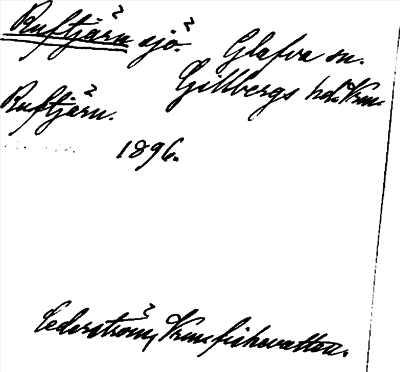 Ruftjärn sjö.
Glafva sn.
Gillbergs hd. Vrm.
Ruftjärn.
1896.
Cederström, Vrm. fiskevatten.